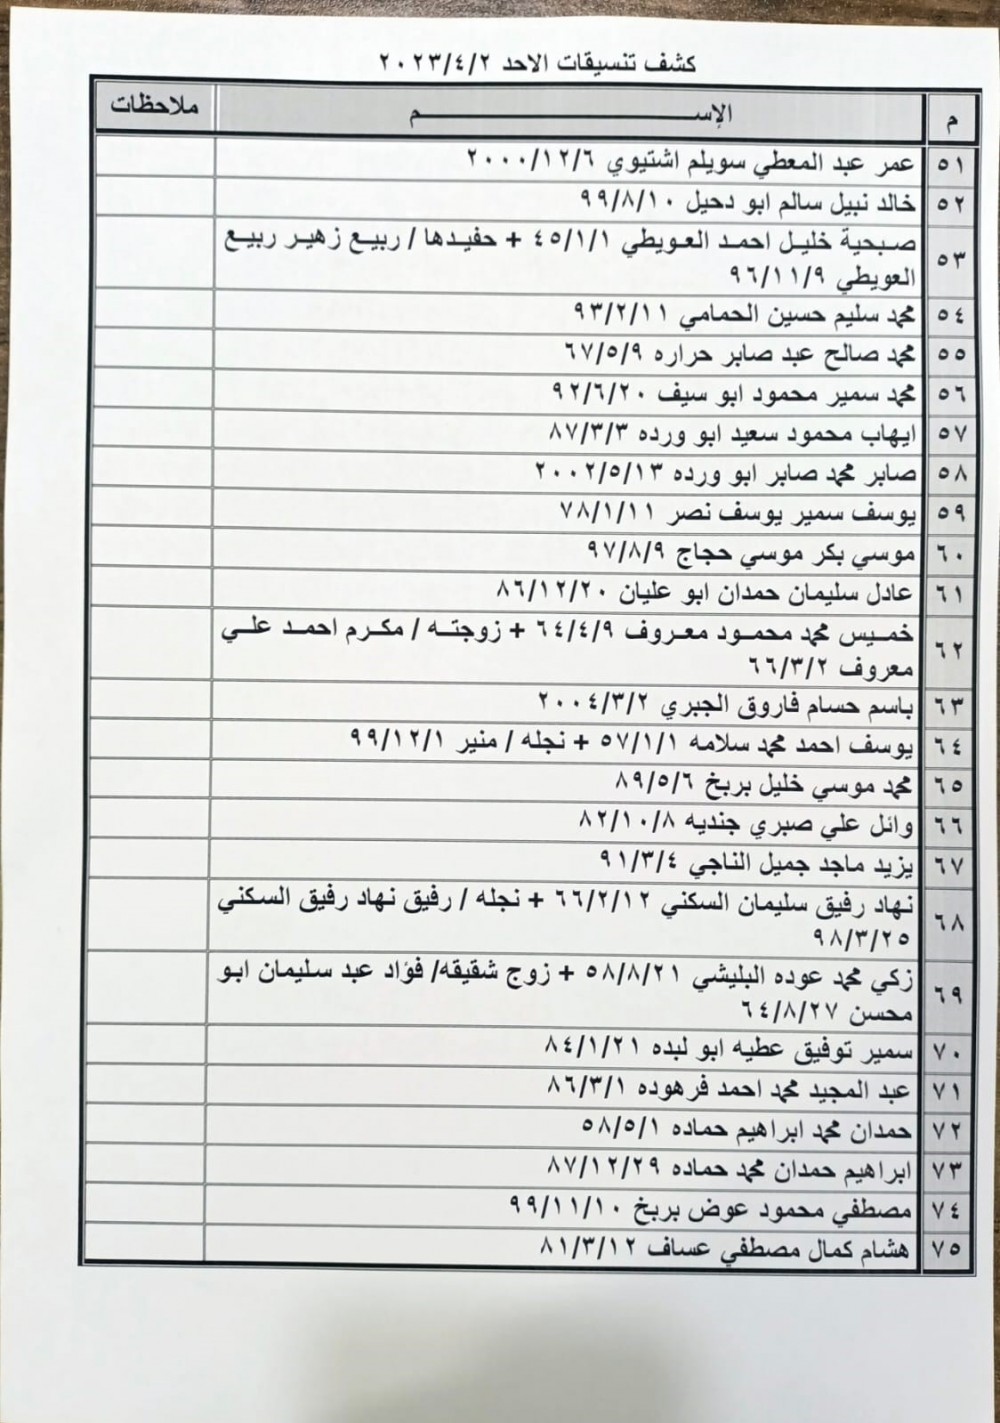 كشف تنسيقات الاحد ٢٠٢٣/٤/٢
م الإســـــــــــــــم ملاحظات
٥١ عمر عبد المعطي سويلم اشتيوي ٢٠٠٠/١٢/٦
٥٢ خالد نبيل سالم ابو دحيل ٩٩/٨/١٠
٥٣ صبحية خليل احمد العويطي ٤٥/١/١ + حفيدها / ربيع زهير ربيع
العويطي ٩٦/١١/٩
٥٤ محمد سليم حسين الحمامي ٩٣/٢/١١
٥٥ محمد صالح عبد صابر حراره ٦٧/٥/٩
٥٦ محمد سمير محمود ابو سيف ٩٢/٦/٢٠
٥٧ ايهاب محمود سعيد ابو ورده ٨٧/٣/٣
٥٨ صابر محمد صابر ابو ورده ٢٠٠٢/٥/١٣
٥٩ يوسف سمير يوسف نصر ٧٨/١/١١
٦٠ موسي بكر موسي حجاج ٩٧/٨/٩
٦١ عادل سليمان حمدان ابو عليان ٨٦/١٢/٢٠
٦٢ خميس محمد محمود معروف ٦٤/٤/٩ + زوجته / مكرم احمد علي
معروف ٦٦/٣/٢
٦٣ باسم حسام فاروق الجبري ٢٠٠٤/٣/٢
٦٤ يوسف احمد محمد سلامه ٥٧/١/١ + نجله / منير ٩٩/١٢/١
٦٥ محمد موسي خليل بربخ ٨٩/٥/٦
٦٦ وائل علي صبري جنديه ٨٢/١٠/٨
٦٧ يزيد ماجد جميل الناجي ٩١/٣/٤
٦٨ نهاد رفيق سليمان السكني ٦٦/٢/١٢ + نجله / رفيق نهاد رفيق السكني
٩٨/٣/٢٥
٦٩ زكي محمد عوده البليشي ٥٨/٨/٢١ + زوج شقيقه/ فؤاد عبد سليمان ابو
محسن ٦٤/٨/٢٧
٧٠ سمير توفيق عطيه ابو لبده ٨٤/١/٢١
٧١ عبد المجيد محمد احمد فرهوده ٨٦/٣/١
٧٢ حمدان محمد ابراهيم حماده ٥٨/٥/١
٧٣ ابراهيم حمدان محمد حماده ٨٧/١٢/٢٩
٧٤ مصطفي محمود عوض بربخ ٩٩/١١/١٠
٧٥ هشام كمال مصطفي عساف ٨١/٣/١٢